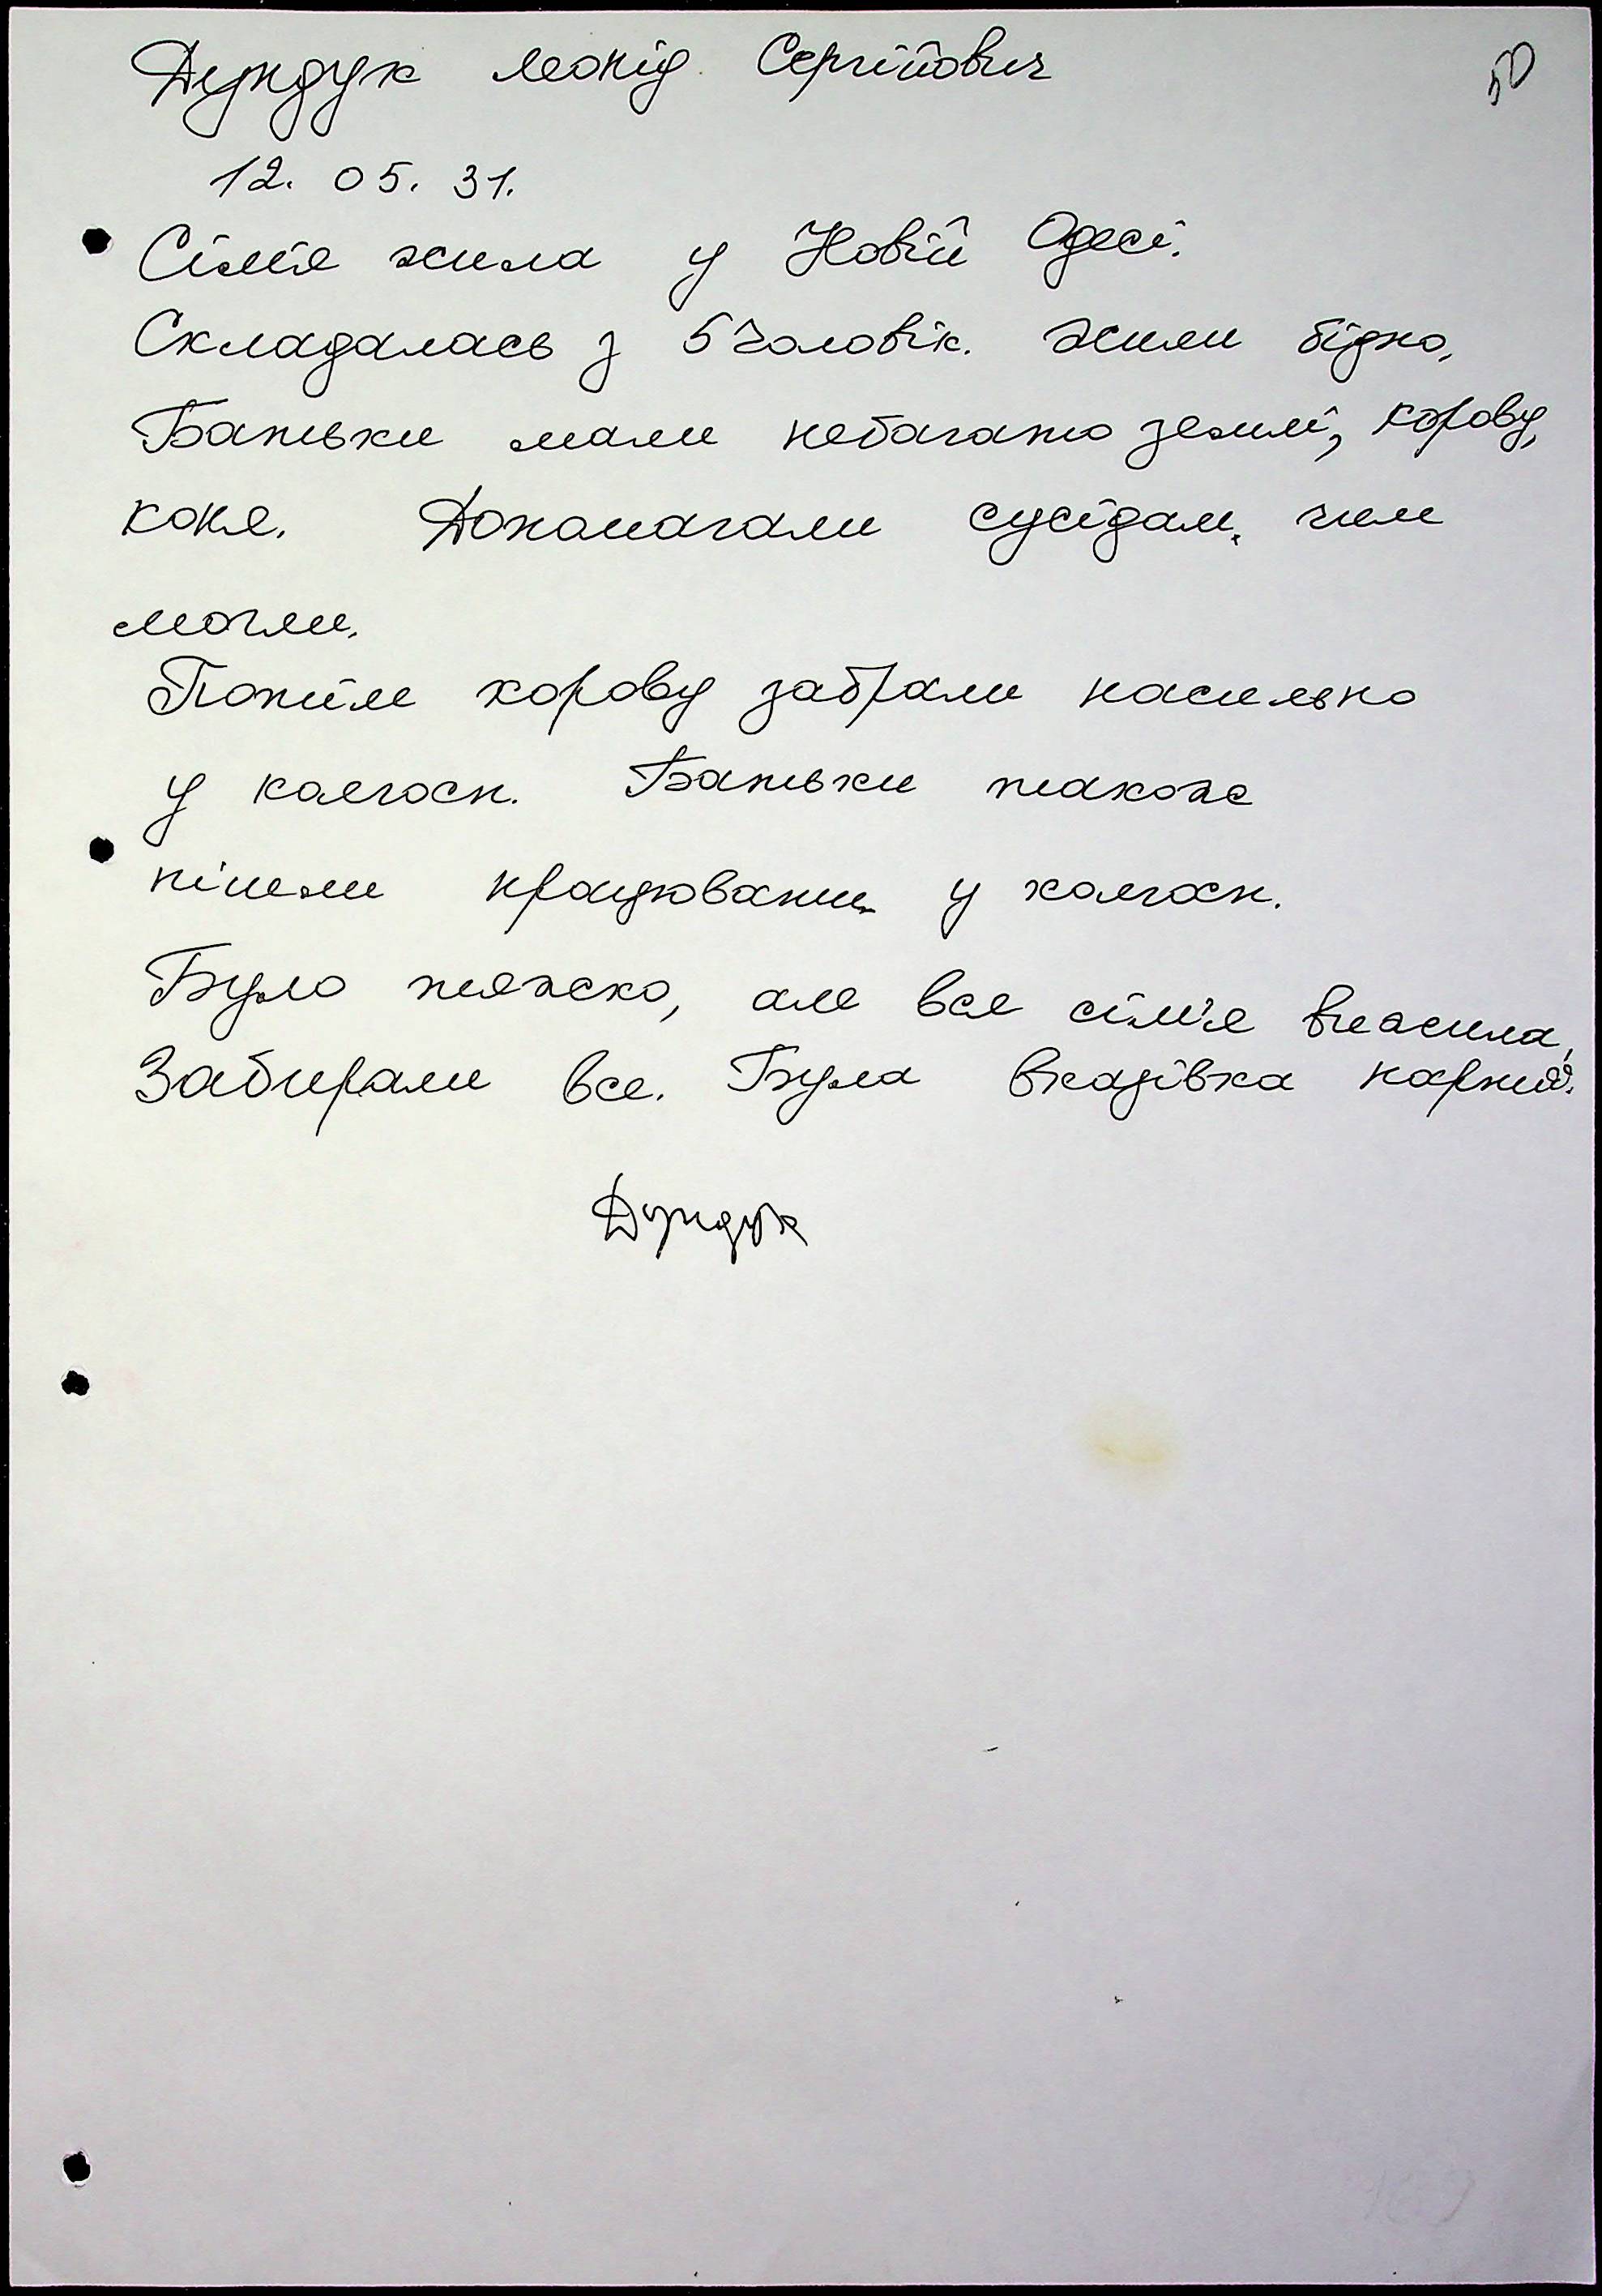 50
Дундук Леонід Сергійович
12. 05. 31.
Сім'я жила у Новій Одесі.
Складалась з 5 чоловік. Жили бідно,
Батьки мали небагато землі, корову,
коня. Допомагали сусідам, чим
могли.
Потім корову забрали насильно
у колгосп. Батьки також
пішли працювати у колгосп.
Було тяжко, але вся сім'я вижила,
Забирали все. Була вказівка партії.
Дундук